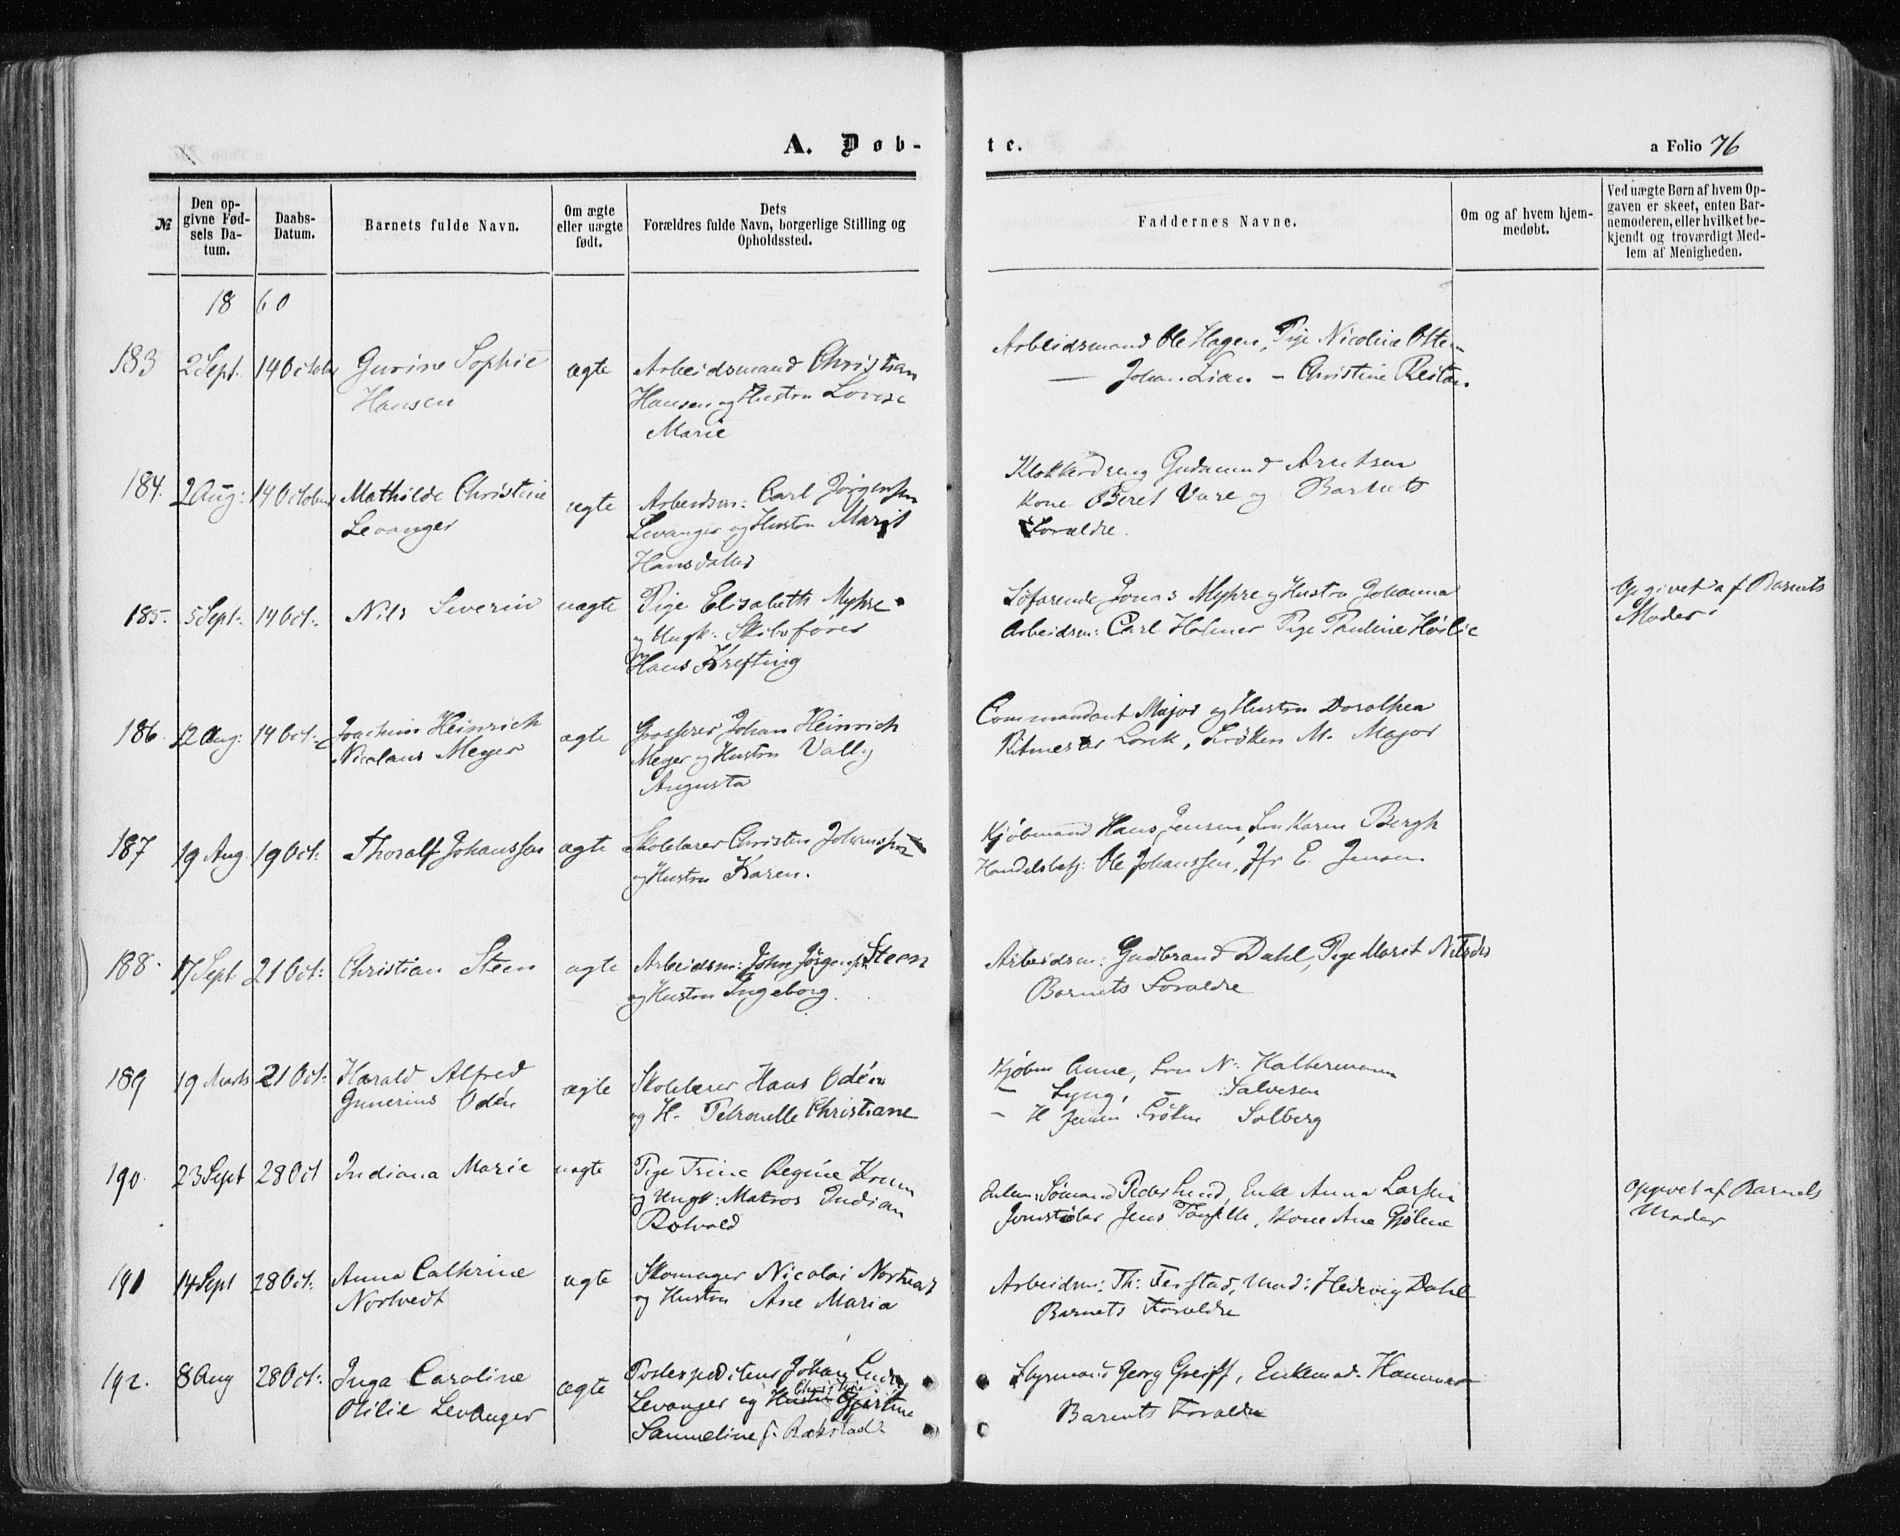 A. Døb-
te.
a Folio 76
№
Den op-
givne Fød-
sels Da-
tum.
Daabs-
Datum.
Barnets fulde Navn.
Om ægte
eller uægte
født.
Dets
Forældres fulde Navn, borgerlige Stilling og
Opholdssted.
Faddernes Navne.
Om og af hvem hjem-
medøbt.
Ved uægte Børn af hvem Op-
gaven er skeet, enten Bar-
nemoderen, eller hvilket be-
kjendt og troværdigt Med-
lem af Menigheden.
1860
183 2 Sept. 14 October Gurine Sophie
Hansen
ægte
Arbeidsmand Christian
Hansen og Hustru Lovise
Marie
Arbeidsmand Ole Hagen, Pige Nicoline
— Johan Lian — Christine
184. 2 Aug: 14 October Mathilde Christine
Levanger
ægte
Arbeidsm: Carl Jørgensen
Levanger og Hustru Marit
Hansdatter
Klokkerdreng Gudmund Arntsen
Kone Beret Vare og Barnets
Forældre.
185. 5 Sept: 14 Oct: Nils Severin
uægte
Pige Elisabeth Myhre
og Ungk: Skibsfører
Hans Krefting
Søfarende Jonas Myhre og Hustru Johanna
Arbeidsm: Carl Holmer Pige Pauline Høilie
Opgivet af Barnets
Moder
186. 12 Aug: 14 Oct: Joachim Heinrich
Nicolaus Meyer
ægte
Grosserer Johan Heinrich
Meyer og Hustru Vally
Augusta
Commandant Major og Hustru Dorothea
Ritmester Lorck, Frøken M. Major
187 19 Aug. 19 Oct: Thoralf Johanssen
ægte
Skolelærer Christen Johanssen
og Hustru Karen.
Kjøbmand Hans Jensen, Fru Karen Bergh
Handelsbetj: Ole Johanssen, Jfr E. Jensen
188. 17 Sept 21 Oct: Christian Steen
ægte
Arbeidsm: John Jørgens. Steen
og Hustru Ingeborg.
Arbeidsm: Gudbrand Dahl, Pige Marit Nilsdr
Barnets Forældre
189 19 Marts 21 Oct: Harald Alfred
Gunerius Odén
ægte
Skolelærer Hans Odén
og H. Petronelle Christiane
Kjøbm Anne, Fru N. Halbermann
— Lyng, — Salvesen
— H Jensen Frøken Solberg
190. 23 Sept 28 Oct Indiana Marie
uægte
Pige Trine Regine
og Ungk: Matros Indian
Rotvold
Sømand Peder Lund, Enke Anna Larsen
Jens Kone Ane
Opgivet af Barnets
Moder
191 14 Sept 28 Oct: Anna Cathrine
Nortvedt
ægte
Skomager Nicolai Nortvedt
og Hustru Ane Maria
Arbeidsm: Th: Ferstad, Mad: Hedevig Dahl
Barnets Forældre
192. 8 Aug 28 Oct: Inga Caroline
Otilie Levanger
ægte
Postexpediteur Johan
Levanger og Hustru Christine Gjertine
Sammeline f. Rakstad
Styrmand Georg Greiff, Enkemad. Hammer
Barnets Forældre